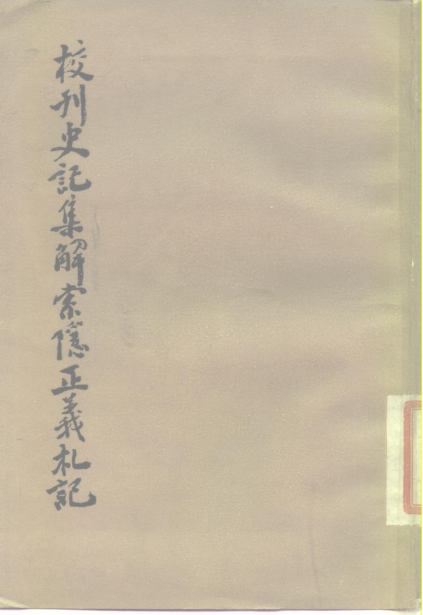 校刊史記集解索隱正義札記